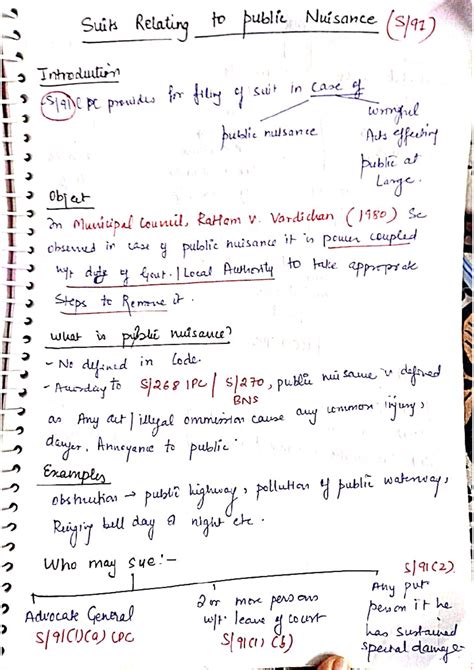 Suits Relating to public Nuisance (S/91)
Introduction
S/91 CPC provides for filing of suit in case of
public nuisance
wrongful
Acts effecting
public at
Large.
Object
In Municipal Council, Ratlam v. Vardichan (1980) Sc
observed in case of public nuisance it is power coupled
w/t duty of Govt. / Local Authority to take appropriate
Steps to Remove it.
what is public nuisance?
- No defined in Code.
- According to S/268 IPC / S/270, public nuisance is defined
BNS
as Any act / illegal ommission cause any common injury,
danger, Annoyance to public.
Examples
obstruction → public highway, pollution of public waterway,
Ringing bell day & night etc.
Who may sue:-
S/91(2)
Advocate General
S/91(1)(a) CPC
2 or more persons
w/t leave of court
S/91(1)(b)
Any
person if he
has sustained
special damage.